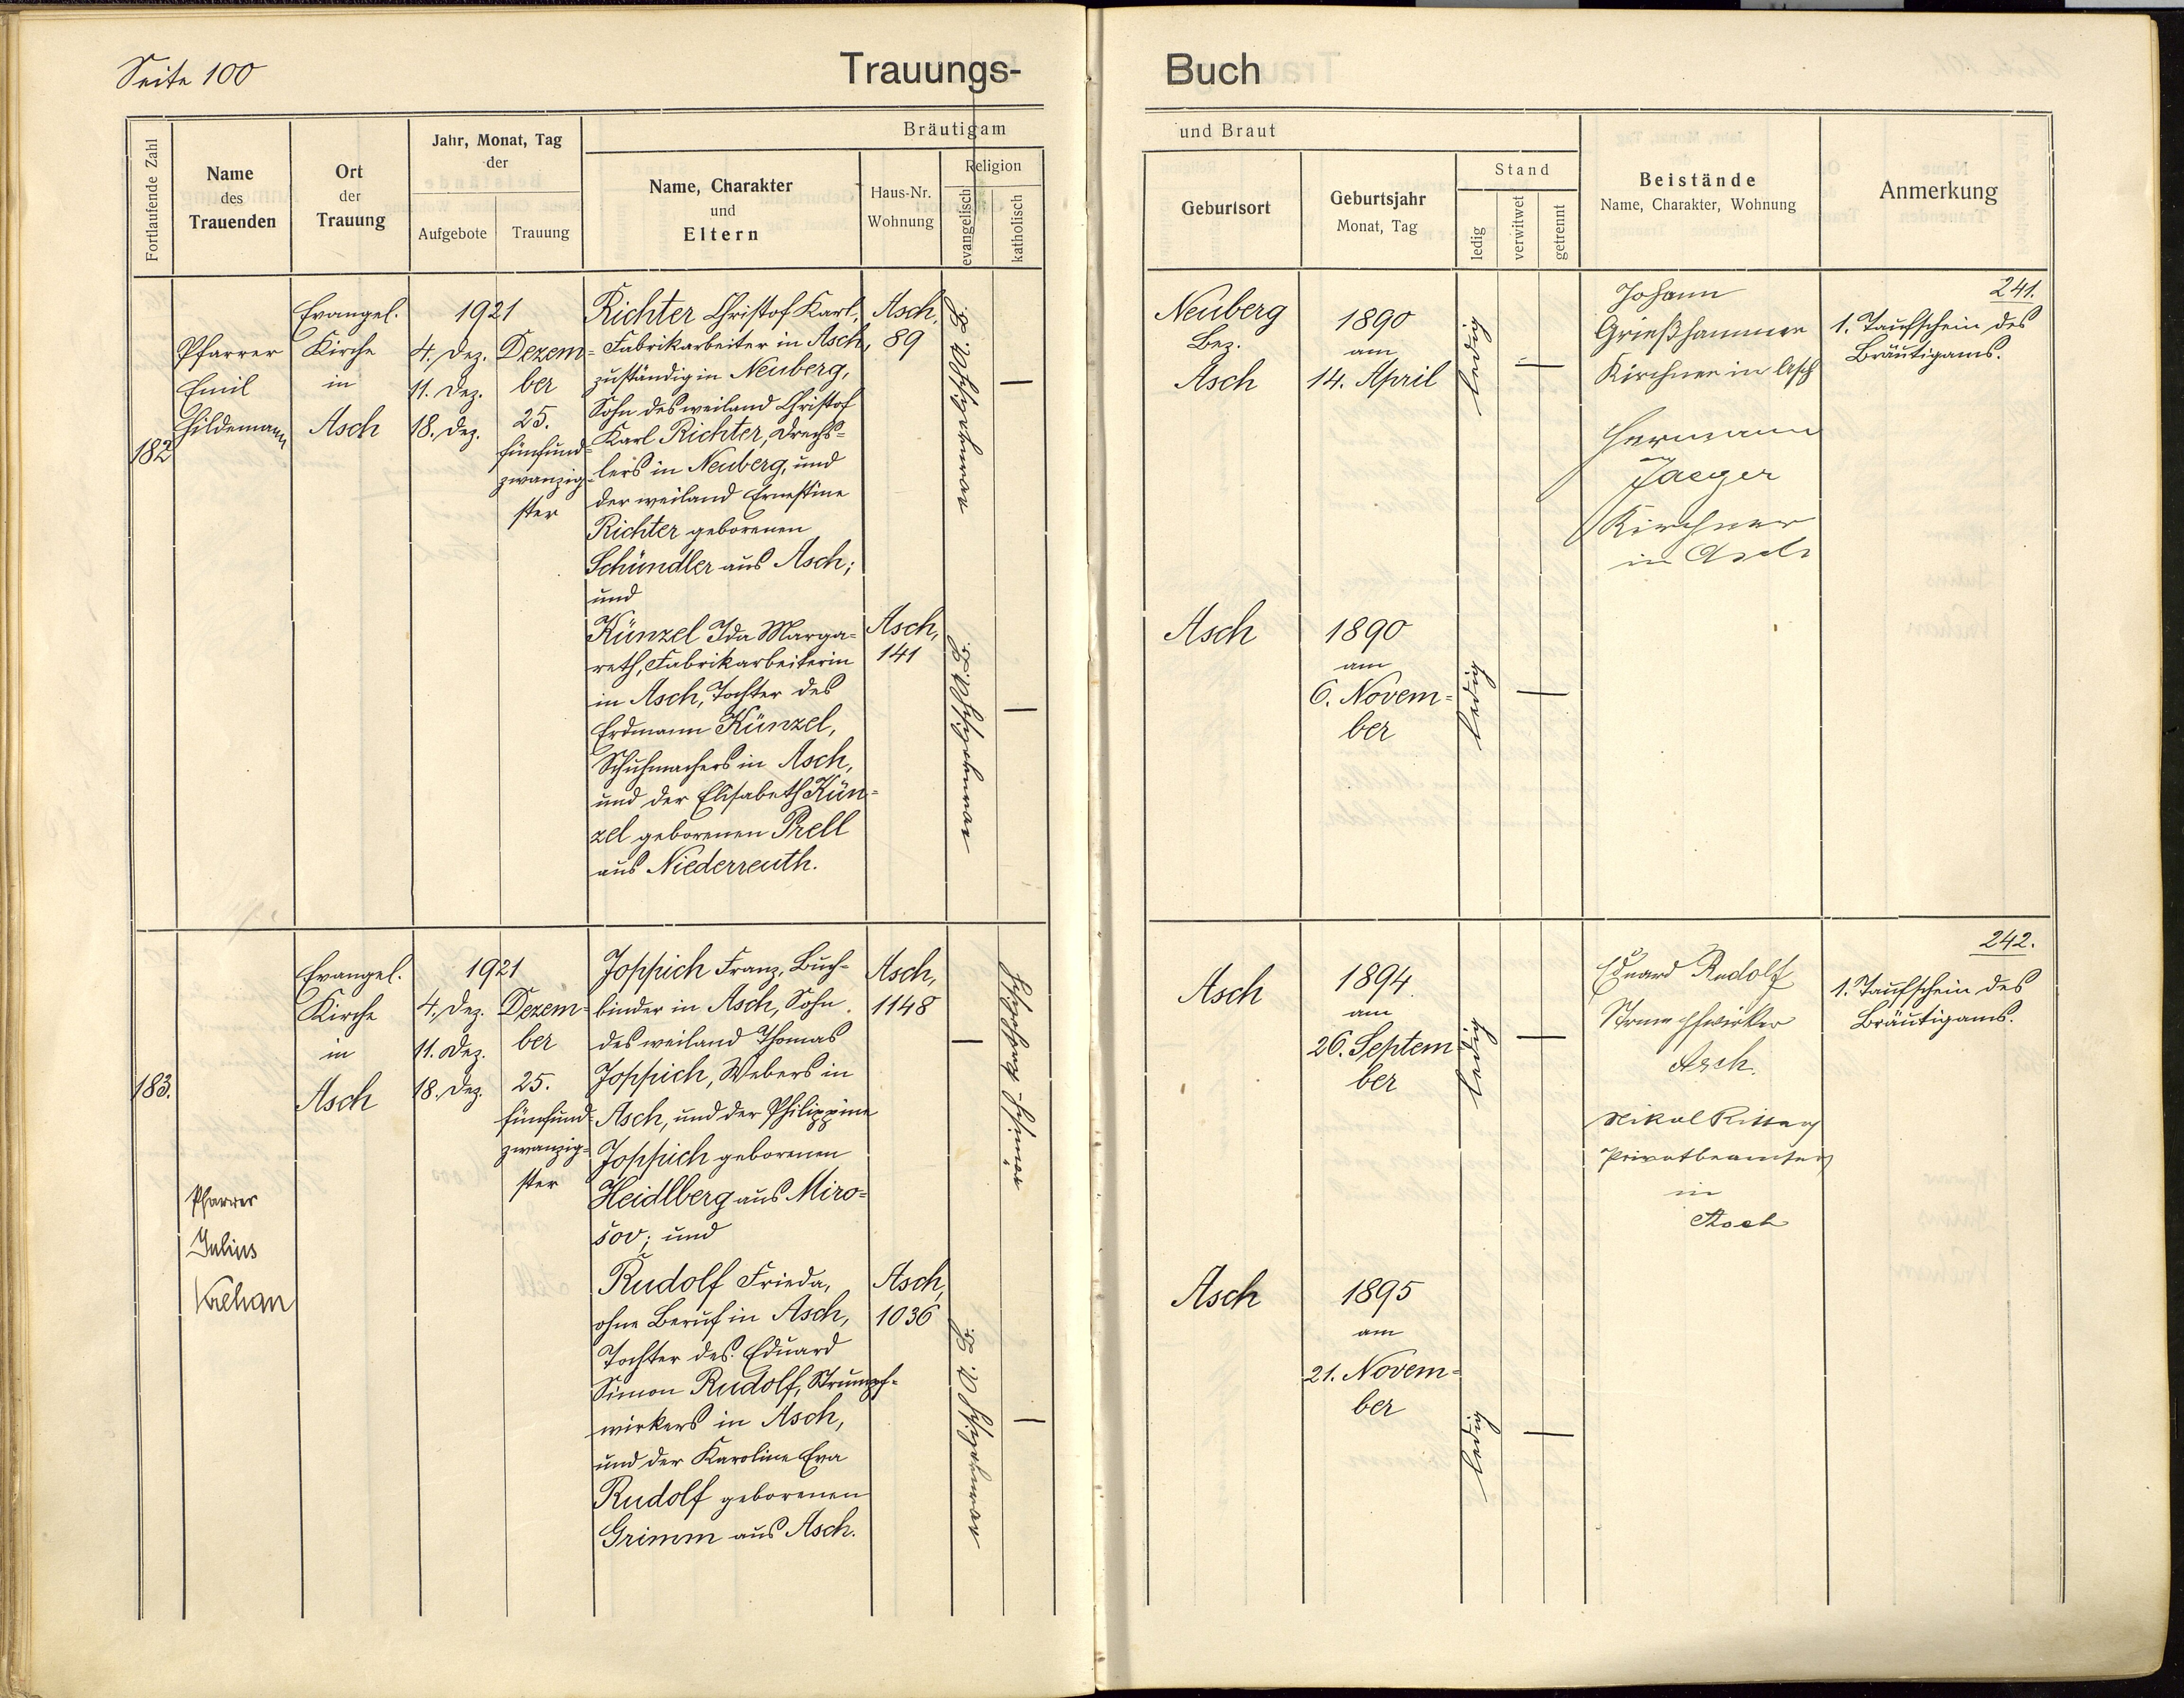 Seite 100
Trauungs-
Buch
Fortlaufende Zahl
Name
des
Trauenden
Ort
der
Trauung
Jahr, Monat, Tag
der
Aufgebote
Trauung
Bräutigam
Name, Charakter
und
Eltern
Haus-Nr.
Wohnung
Religion
evangelisch
katholisch
und Braut
Geburtsort
Geburtsjahr
Monat, Tag
Stand
ledig
verwitwet
getrennt
Beistände
Name, Charakter, Wohnung
Anmerkung
182
Pfarrer
Emil
Hildemann
Evangel.
Kirche
in
Asch
1921
4. Dez.
11. Dez.
18. Dez.
Dezem-
ber
25.
fünfund-
zwanzig-
ster
Richter Christof Karl,
Fabrikarbeiter in Asch,
zuständig in Neuberg,
Sohn des weiland Christof
Karl Richter, Drechs-
lers in Neuberg, und
der weiland Ernestine
Richter geborenen
Schündler aus Asch;
und
Künzel Ida Marga-
reth, Fabrikarbeiterin
in Asch, Tochter des
Erdmann Künzel,
Schuhmachers in Asch,
und der Elisabeth Kün-
zel geborenen Prell
aus Niederreuth.
Asch,
89
Asch,
141
Neuberg
Bez.
Asch
1890
am
14. April
ledig
Asch
1890
am
6. Novem-
ber
ledig
Johann
Grießhammer
Kirchner in Asch
Hermann
Jaeger
Kirchner
in Asch
241.
1. Taufschein des
Bräutigams.
183.
Pfarrer
Julius
Krehan
Evangel.
Kirche
in
Asch
1921
4. Dez.
11. Dez.
18. Dez.
Dezem-
ber
25.
fünfund-
zwanzig-
ster
Joppich Franz, Buch-
binder in Asch, Sohn
des weiland Thomas
Joppich, Webers in
Asch, und der Philippine
Joppich geborenen
Heidlberg aus Miro-
šov; und
Rudolf Frieda,
ohne Beruf in Asch,
Tochter des Eduard
Simon Rudolf, Strumpf-
wirkers in Asch,
und der Karoline Eva
Rudolf geborenen
Grimm aus Asch.
Asch,
1148
Asch,
1036
römisch-katholisch
Asch
1894
am
26. Septem
ber
ledig
Asch
1895
am
21. Novem-
ber
ledig
Eduard Rudolf
Strumpfwirker
Asch.
Nikol Ritter
Privatbeamter
in
Asch
242.
1. Taufschein des
Bräutigams.